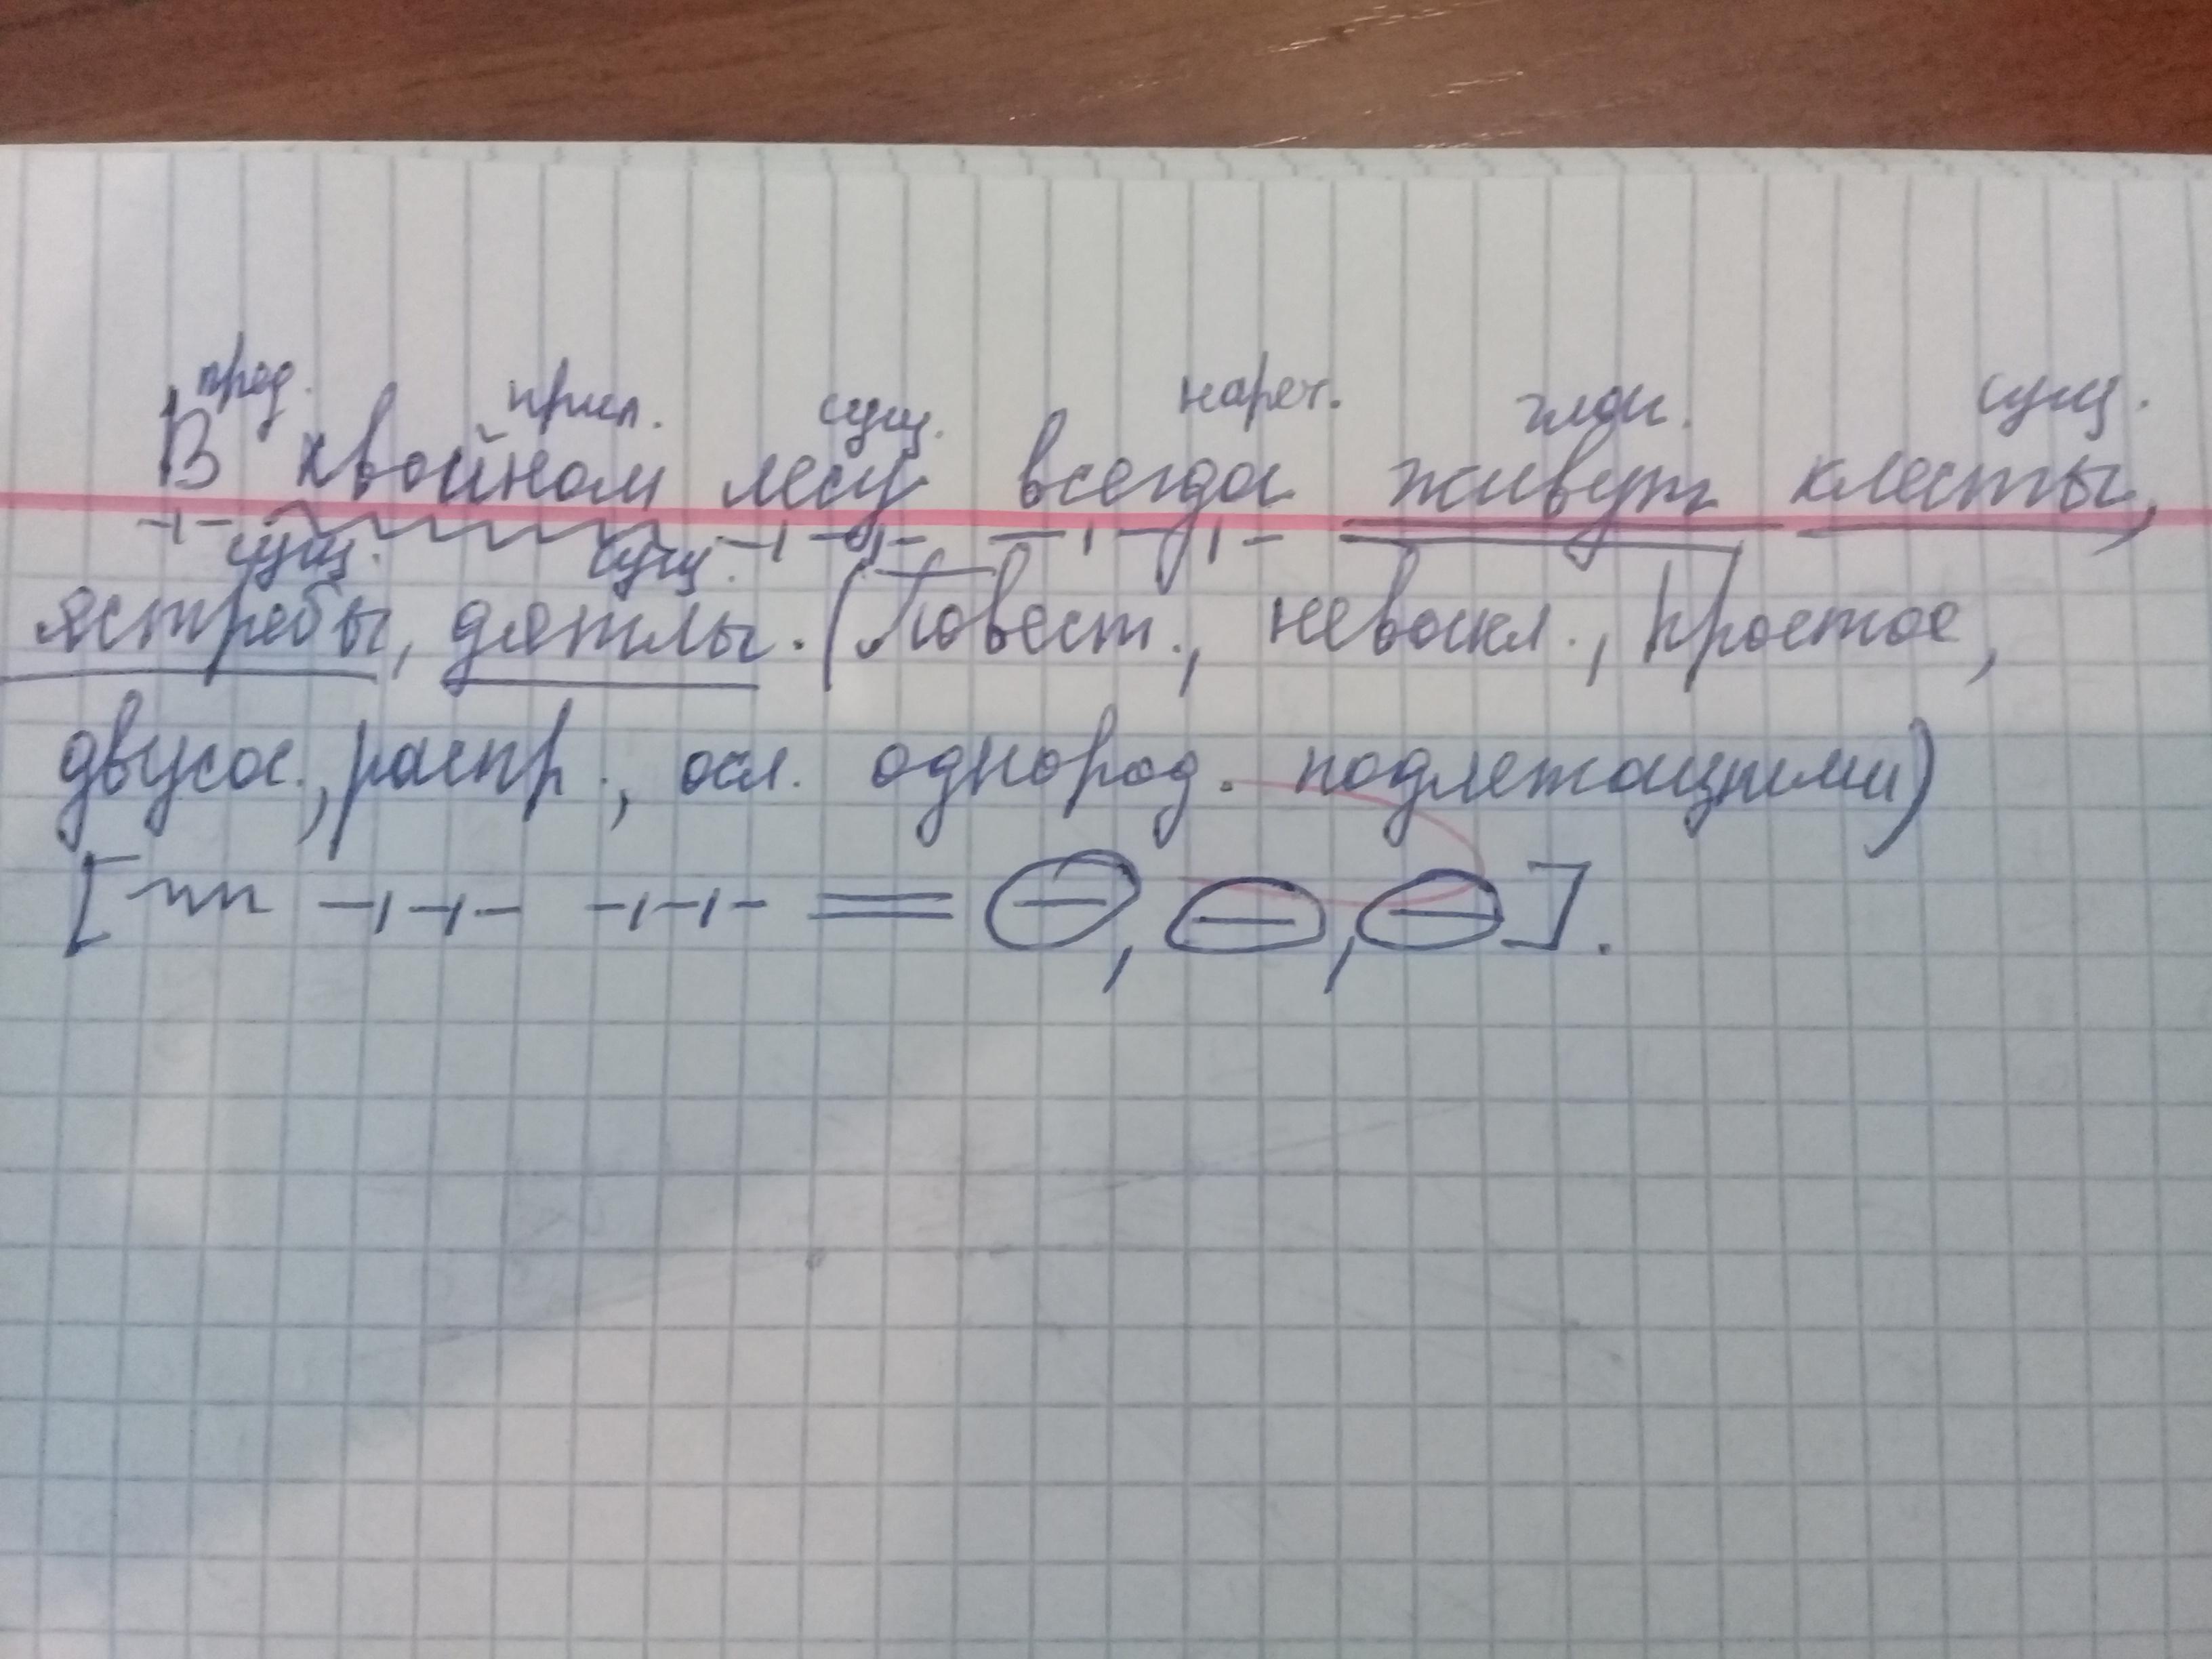 пред. прил. сущ. нареч. глаг. сущ.
В хвойном лесу всегда живут клесты,
сущ. сущ.
ястребы, дятлы. (Повест., невоскл., простое,
двусос., распр., осл. однород. подлежащими)
[ , , ].